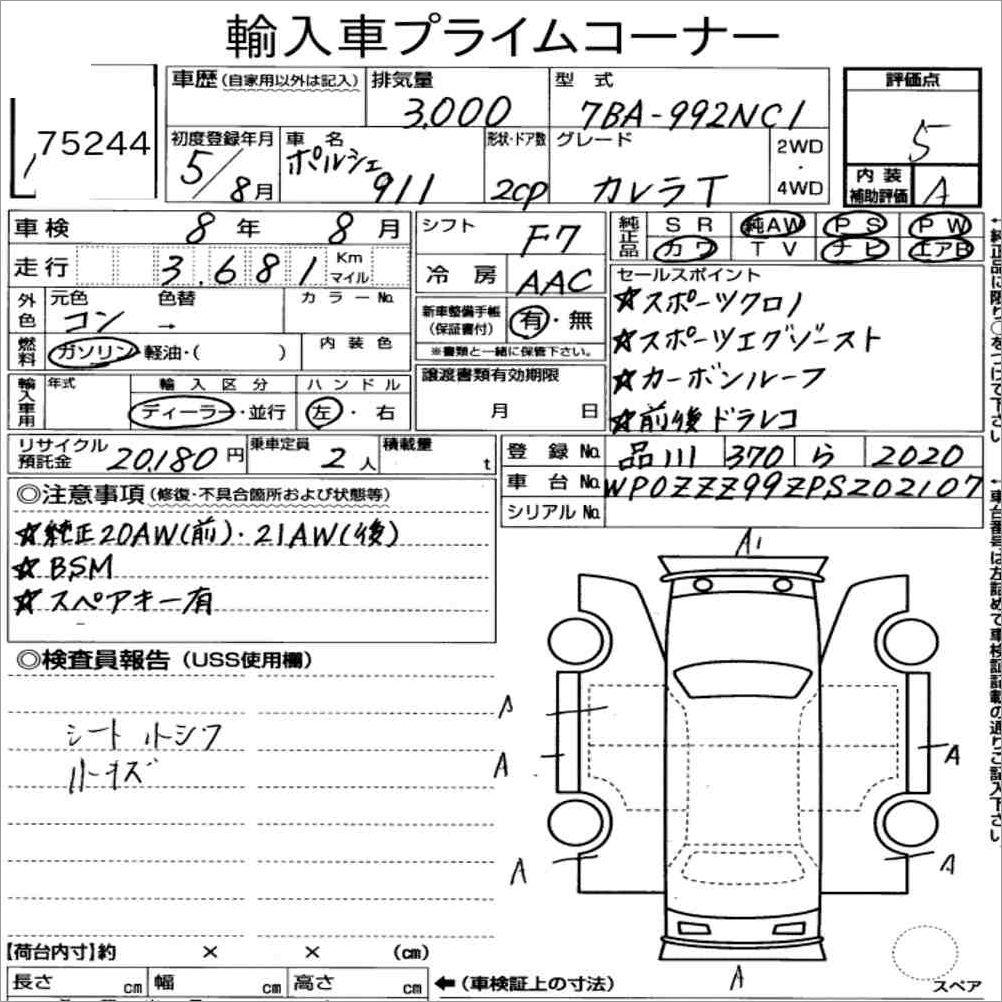 輸入車プライムコーナー
75244
車歴(自家用以外は記入) 排気量 3,000 型式 7BA-992NC1 評価点 5
初度登録年月 5/8月 車名 ポルシェ 911 形状・ドア数 2CP グレード カレラT 2WD・4WD 内装補助評価 A
車検 8年 8月 シフト F7 純正品 SR 純AW PS PW
カワ TV ナビ エアB
走行 3,681 Km マイル 冷房 AAC セールスポイント
外色 元色 コン 色替 → カラーNo. 新車整備手帳(保証書付) 有・無
☆スポーツクロノ
燃料 ガソリン・軽油・( ) 内装色 ※書類と一緒に保管下さい。
☆スポーツエグゾースト
輸入車用 年式 輸入区分 ディーラー・並行 ハンドル 左・右 譲渡書類有効期限 月 日
☆カーボンルーフ
☆前後ドラレコ
リサイクル預託金 20,180円 乗車定員 2人 積載量 t 登録No. 品川 370 ら 2020
車台No. WP0ZZZ99ZPS202107
シリアルNo.
◎注意事項(修復・不具合箇所および状態等)
☆純正20AW(前)・21AW(後)
☆BSM
☆スペアキー有
◎検査員報告(USS使用欄)
シート小シワ
小キズ
A1
A
A
A
A
A
A
【荷台内寸】約 × × (cm)
長さ cm 幅 cm 高さ cm ←(車検証上の寸法)
スペア
↑純正品に限り○をつけて下さい
↑車台番号は左詰めで車検証記載の通りご記入下さい。